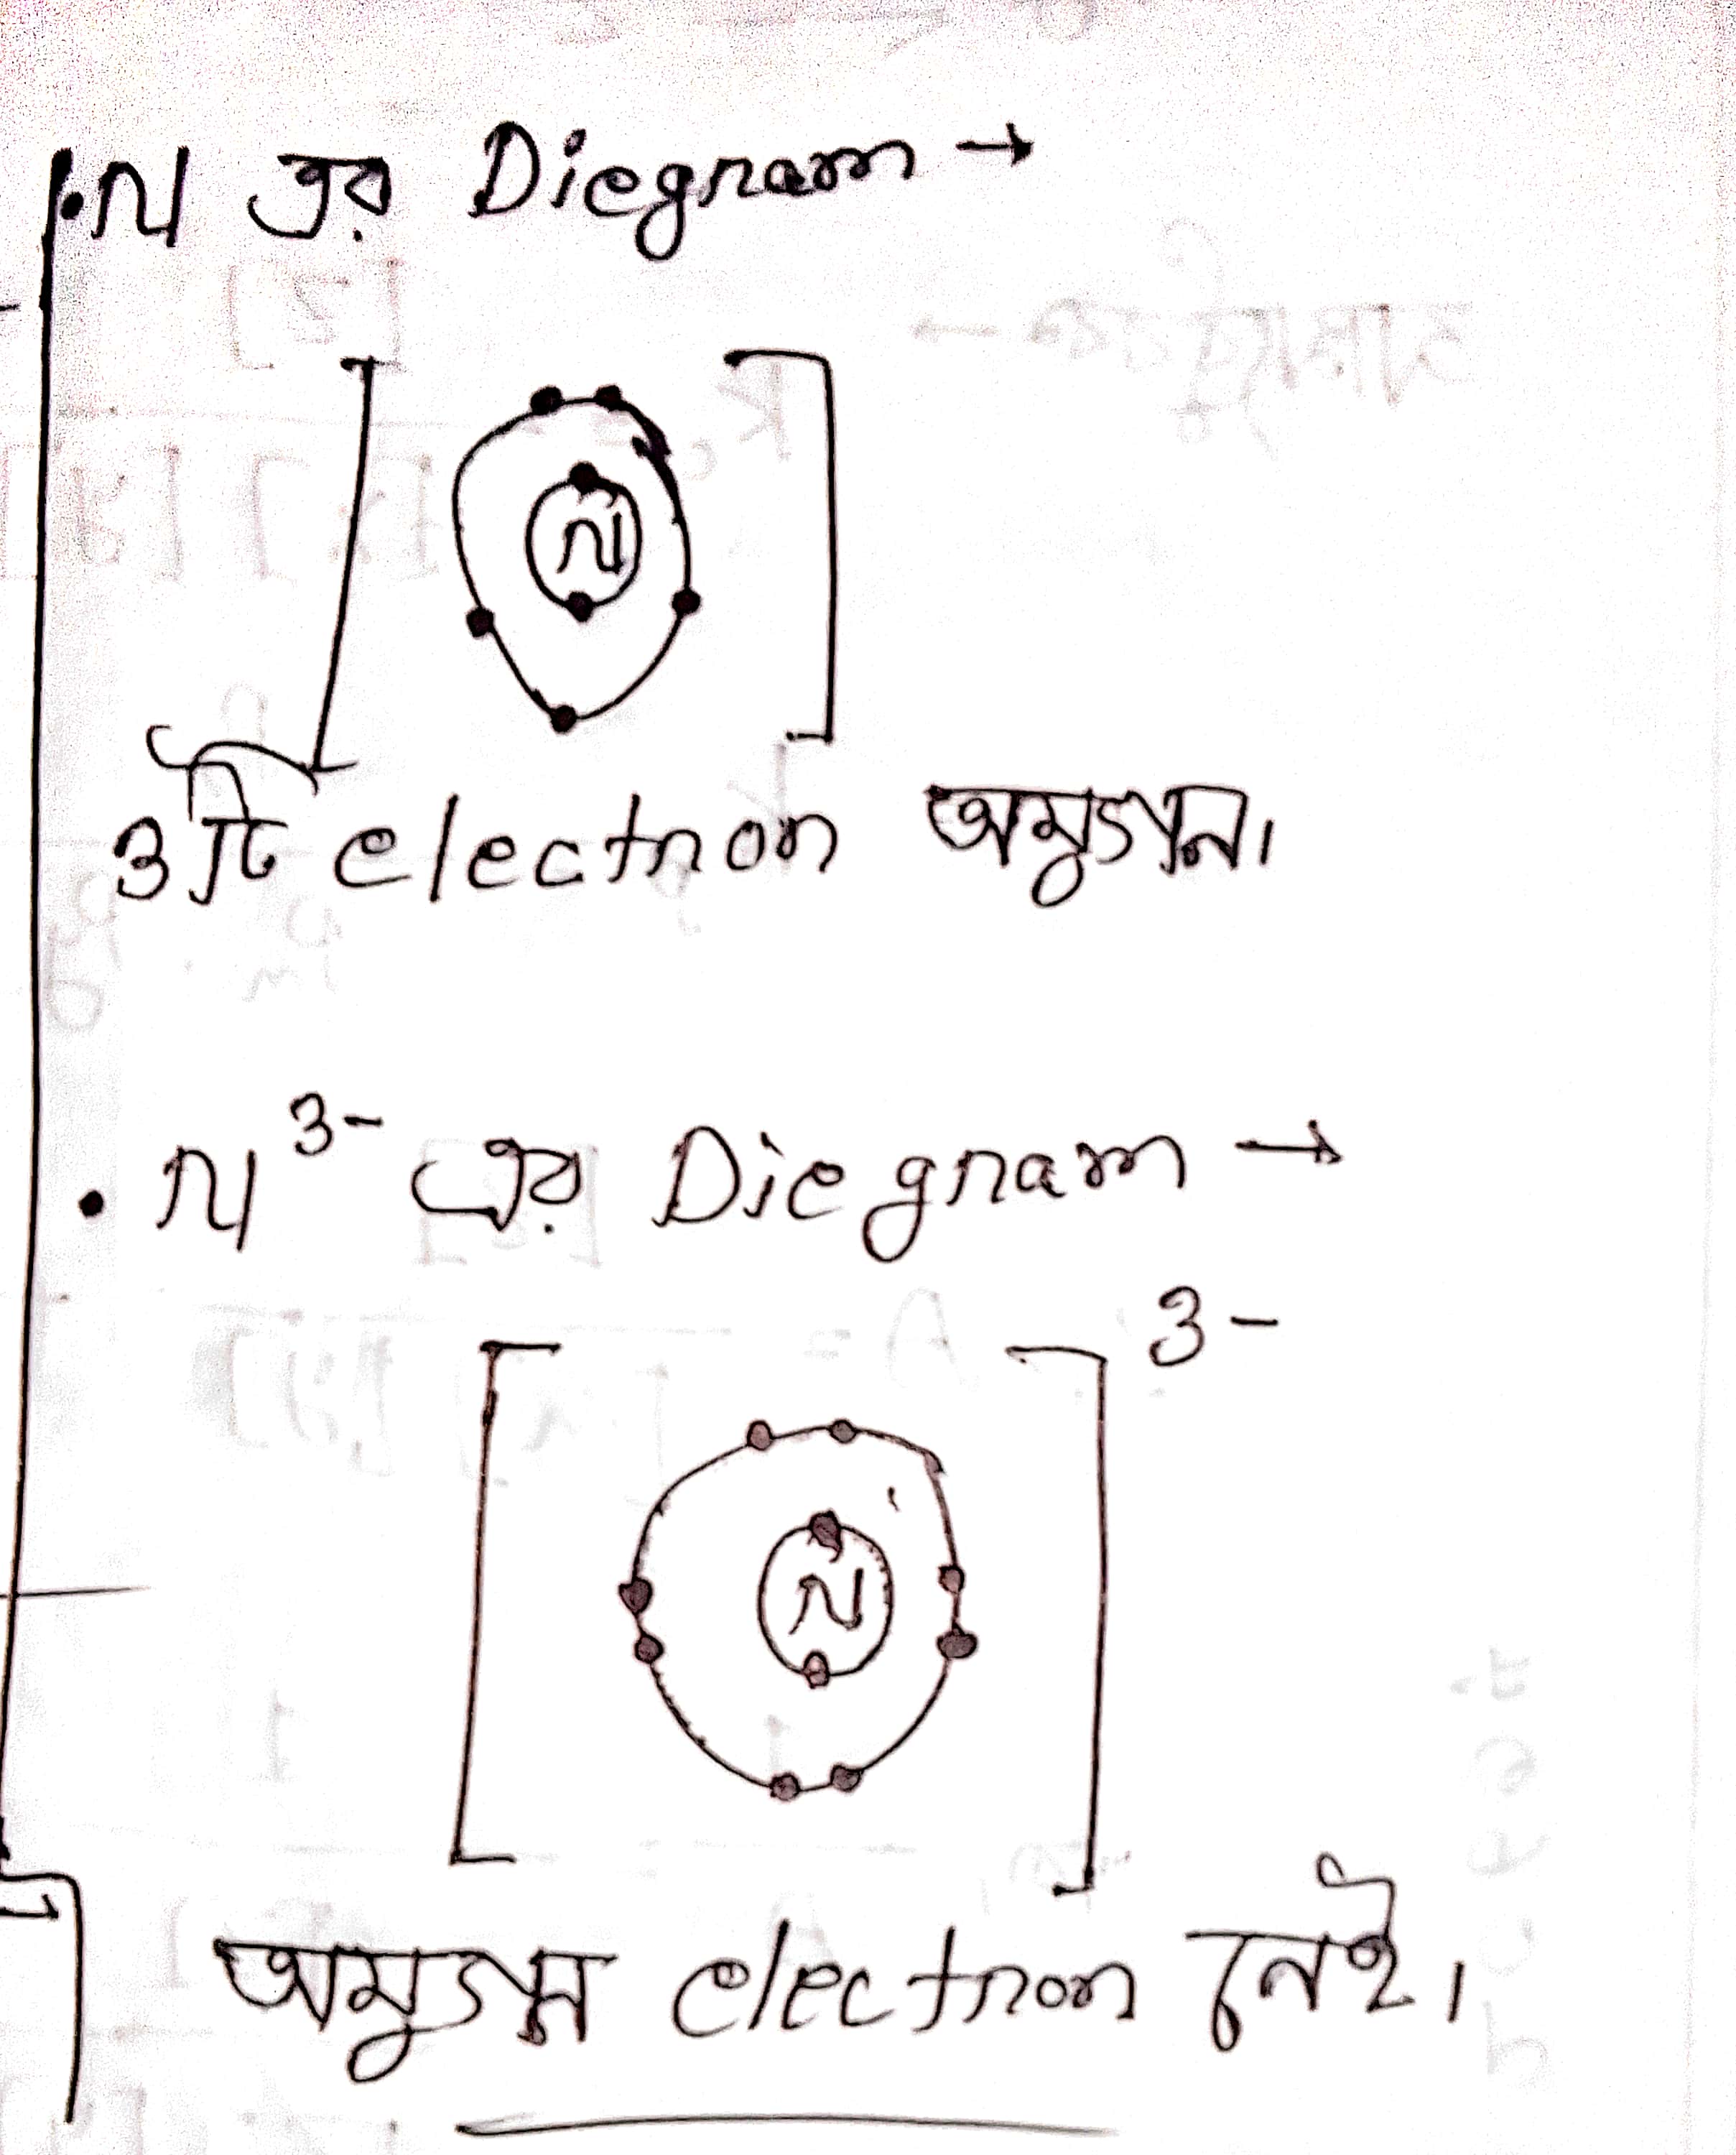 • N এর Diegram →
N
3টি electron অযুগ্ম।
• N³⁻ এর Diegram →
3-
N
অযুগ্ম electron নেই।